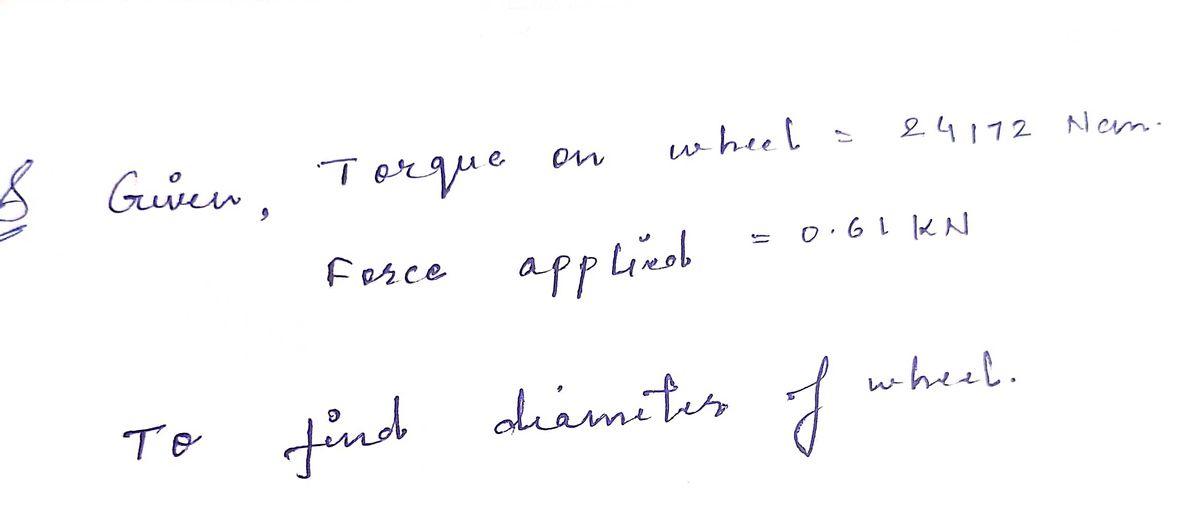 Q Given, Torque on wheel = 24172 Ncm.
Force applied = 0.61 kN
To find diameter of wheel.